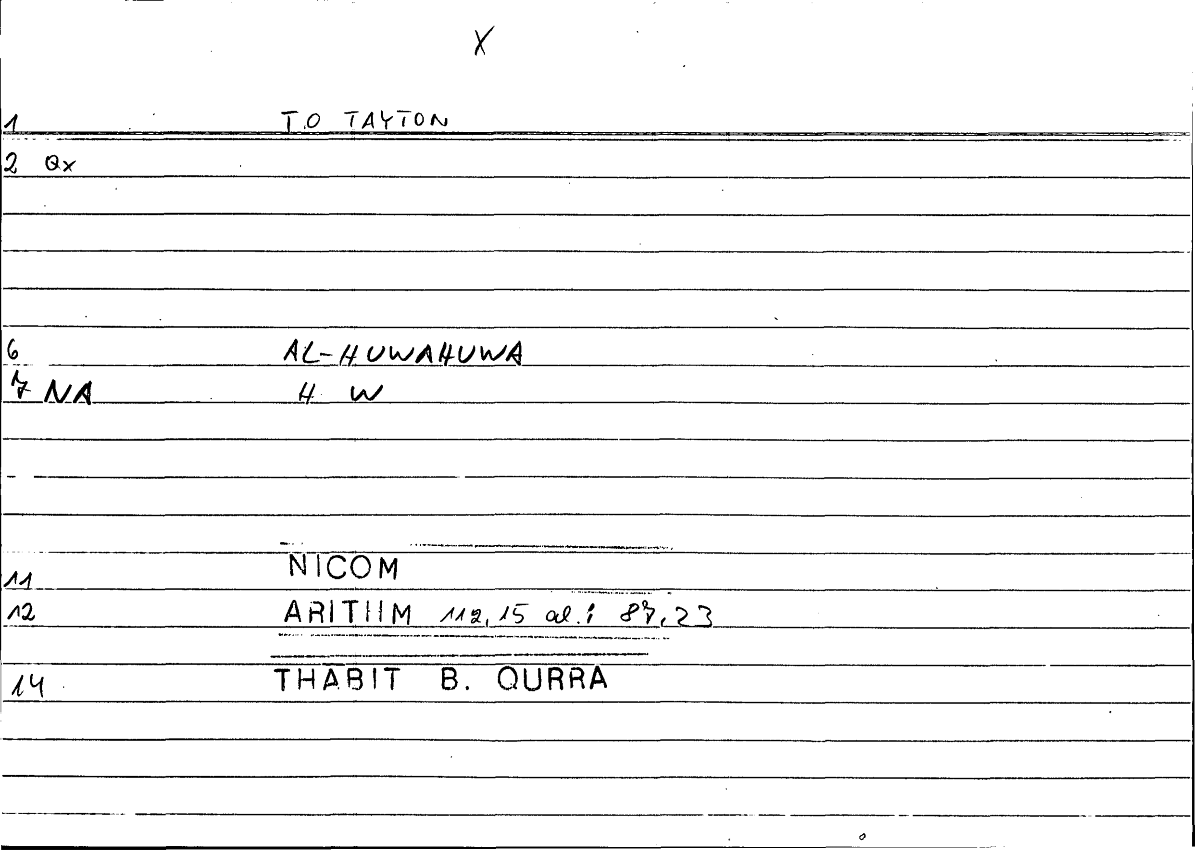 X
1 T.O TAYTON
2 Qx
6 AL-HUWAHUWA
7 NA H W
NICOM
11
12 ARITIIM 112,15 al.; 87,23
14 THĀBIT B. QURRA